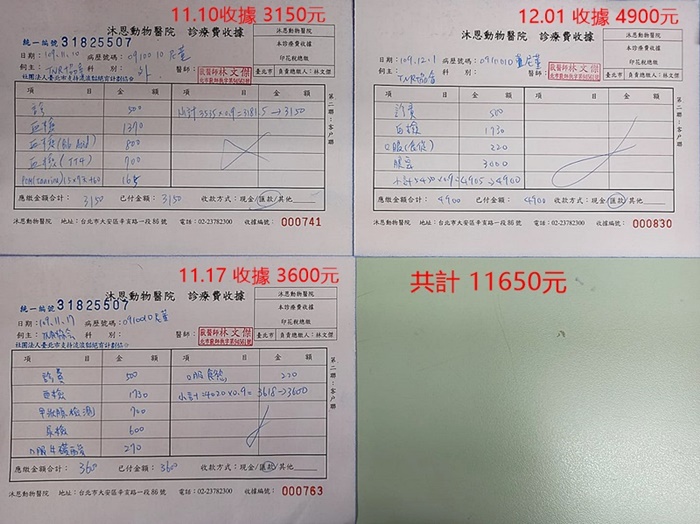 11.10收據 3150元
沐恩動物醫院 診療費收據
統一編號 31825507
沐恩動物醫院
本診療費收據
印花稅總繳
臺北市 負責總繳人:林文傑
日期:109.11.10 病歷號碼:0910010
飼主:TNR協會 科別: 醫師:
獸醫師林文傑
社團法人臺北市支持流浪貓絕育計劃協會
項 目 金 額 項 目 金 額
診 500 小計3535×0.9=3181.5→3150
血檢 1370
血檢 800
血檢(TT4) 700
165
應繳金額合計: 3150 已付金額: 3150 收款方式:現金/匯款/其他
沐恩動物醫院 地址:台北市大安區辛亥路一段86號 電話:02-23782300 收據編號: 000741
第二聯:客戶聯
12.01 收據 4900元
沐恩動物醫院 診療費收據
統一編號 31825507
沐恩動物醫院
本診療費收據
印花稅總繳
臺北市 負責總繳人:林文傑
日期:109.12.1 病歷號碼:0910010
飼主:TNR協會 科別: 醫師:
獸醫師林文傑
項 目 金 額 項 目 金 額
診費 500
血檢 1730
口服 220
3000
小計5450×0.9=4905→4900
應繳金額合計: 4900 已付金額: 4900 收款方式:現金/匯款/其他
沐恩動物醫院 地址:台北市大安區辛亥路一段86號 電話:02-23782300 收據編號: 000830
第二聯:客戶聯
11.17 收據 3600元
沐恩動物醫院 診療費收據
統一編號 31825507
沐恩動物醫院
本診療費收據
印花稅總繳
臺北市 負責總繳人:林文傑
日期:109.11.17 病歷號碼:0910010
飼主:TNR協會 科別: 醫師:
獸醫師林文傑
社團法人臺北市支持流浪貓絕育計劃協會
項 目 金 額 項 目 金 額
診費 500 口服 220
血檢 1730 小計=4020×0.9=3618→3600
甲狀腺檢測 700
尿檢 600
口服 270
應繳金額合計: 3600 已付金額: 3600 收款方式:現金/匯款/其他
沐恩動物醫院 地址:台北市大安區辛亥路一段86號 電話:02-23782300 收據編號: 000763
第二聯:客戶聯
共計 11650元